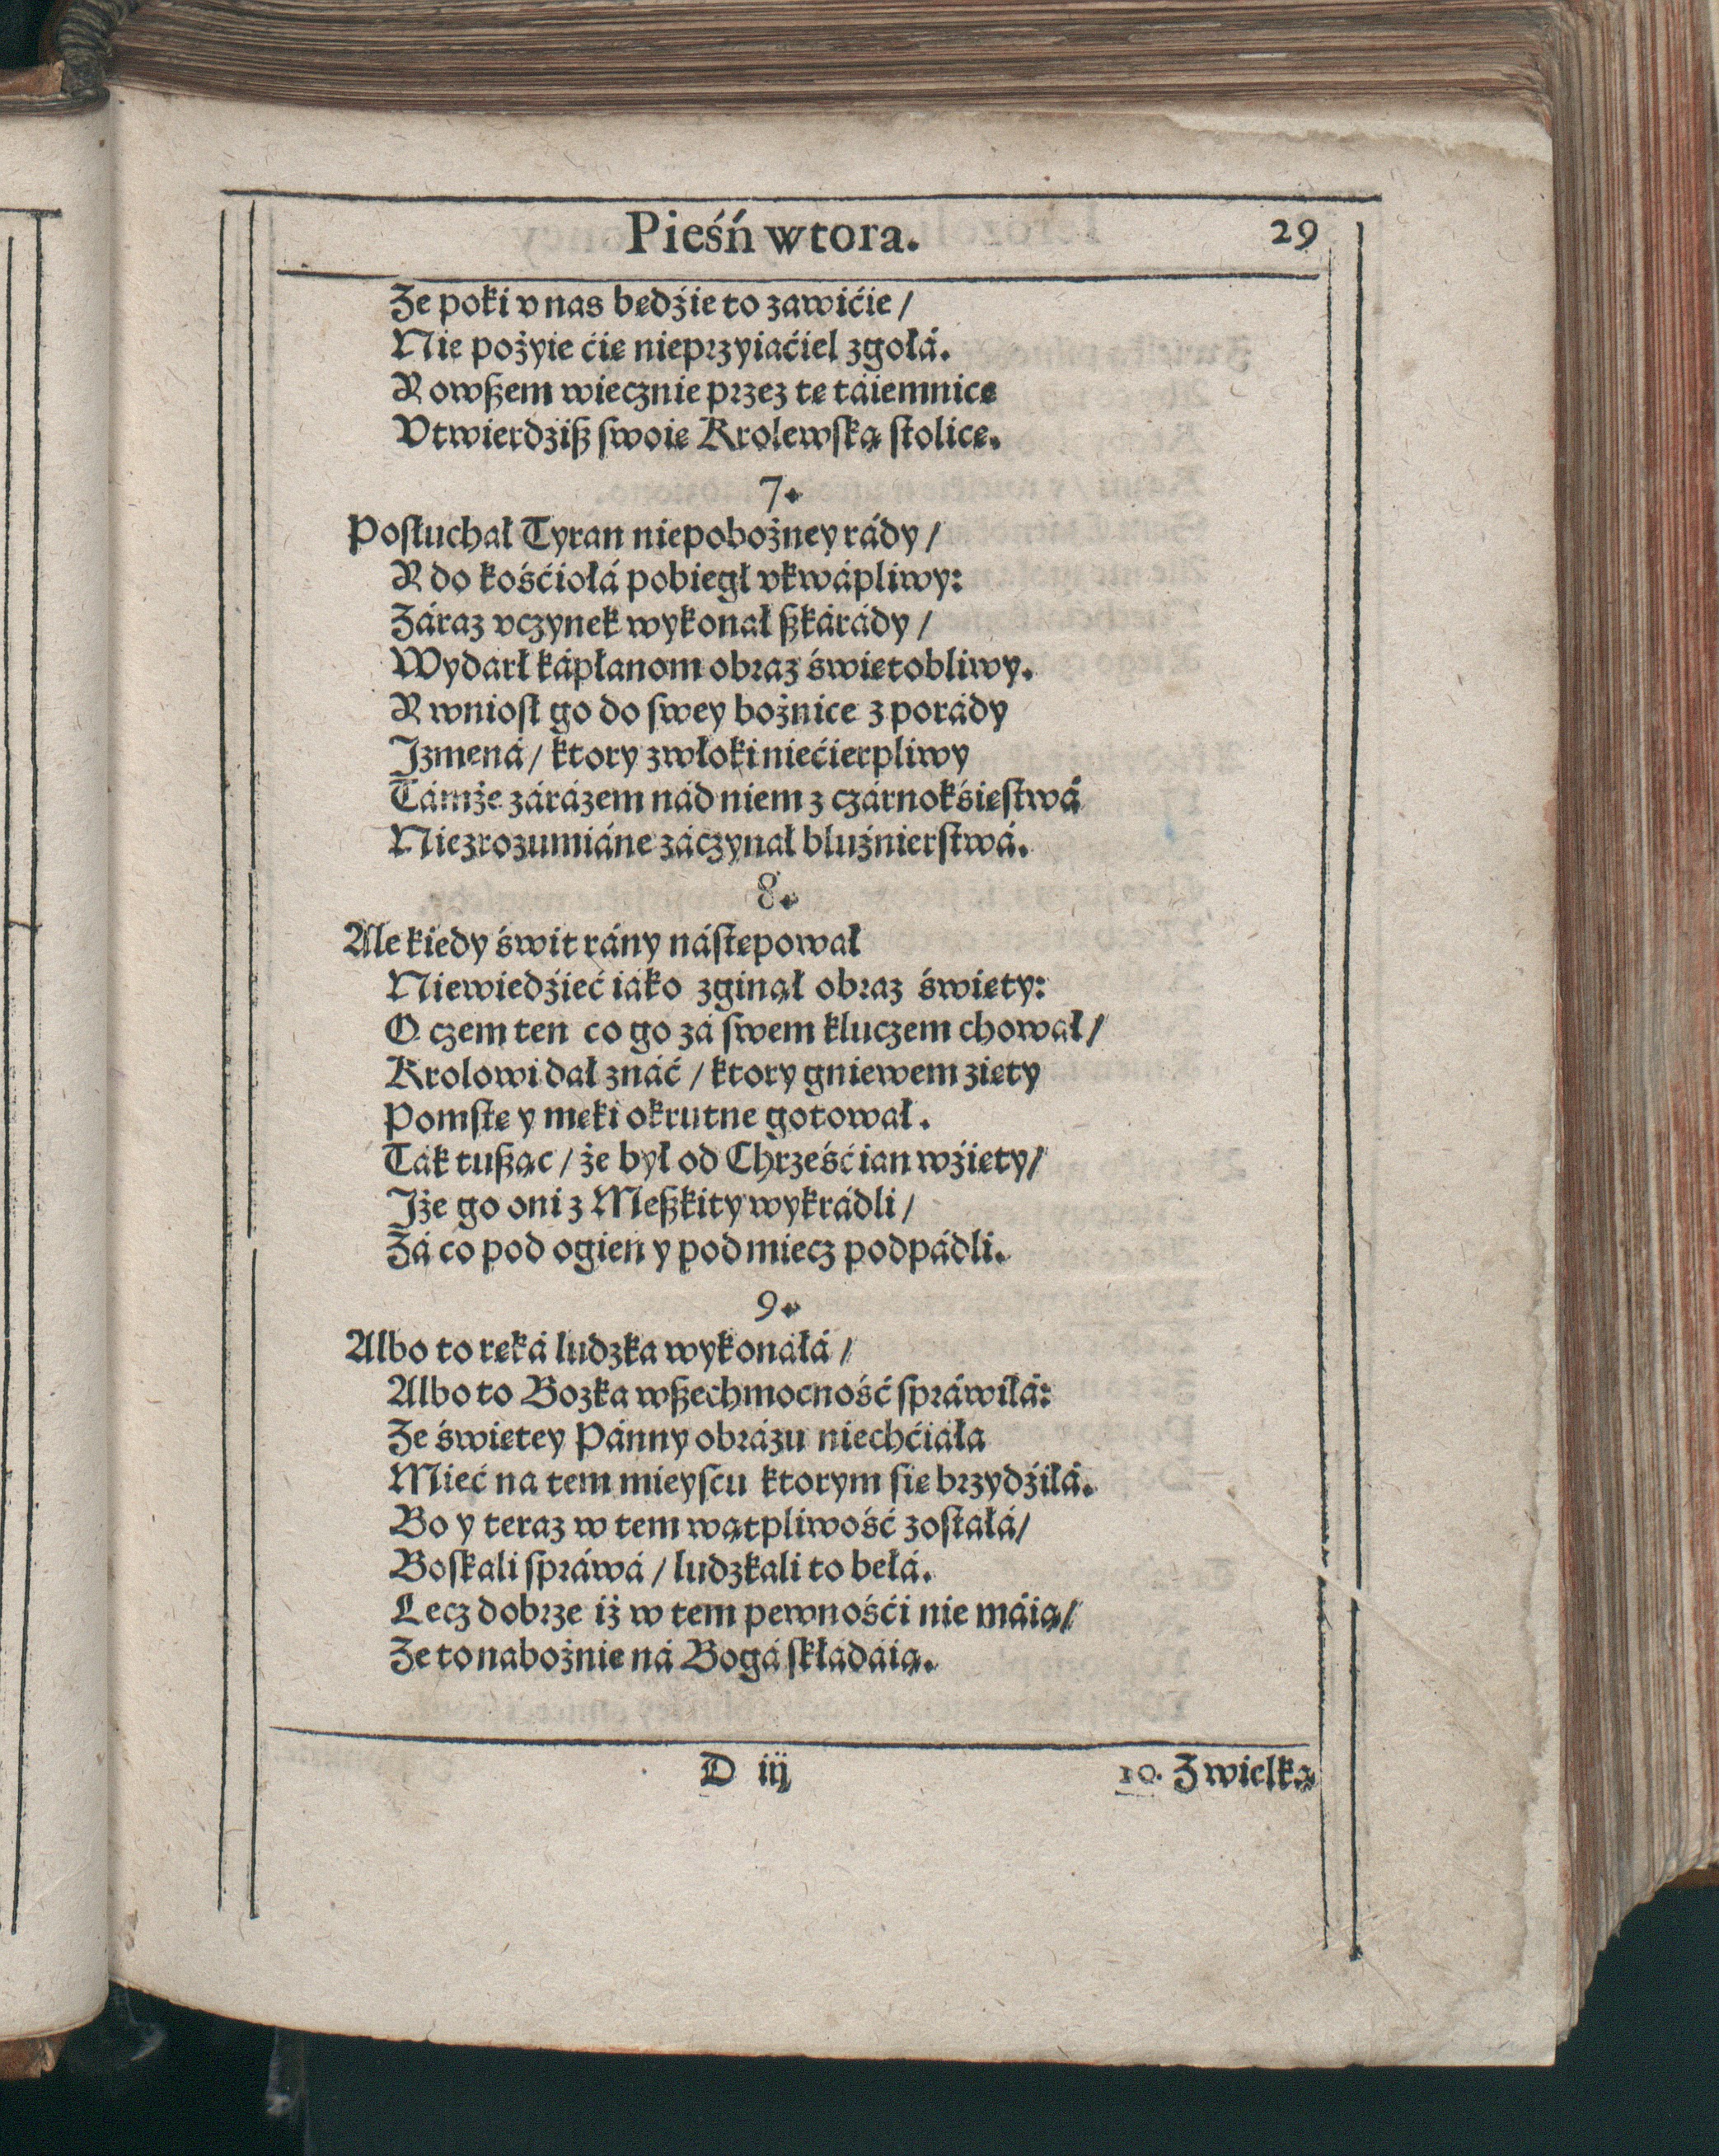 Pieśń wtora. 29
Że poki v nas będźie to zawićie /
Nie pożyie ćię nieprzyiaćiel zgołá.
Y owßem wiecznie przez tę táiemnicę
Vtwierdźiß swoię Krolewską stolicę.
7.
Posłuchał Tyran niepobożney rády /
Y do kośćiołá pobiegł vkwápliwy:
Záraz vczynek wykonał ßkárády /
Wydarł kápłanom obraz świętobliwy.
Y wniosł go do swey bożnice z porády
Jzmená / ktory zwłoki niećierpliwy
Támże zárázem nád niem z czárnokśięstwá
Niezrozumiáne záczynał bluźnierstwá.
8.
Ale kiedy świt rány nástępował
Niewiedźieć iáko zginął obraz święty:
O czem ten co go zá swem kluczem chował /
Krolowi dał znáć / ktory gniewem zięty
Pomstę y męki okrutne gotował.
Ták tußąc / że był od Chrześćian wźięty /
Jże go oni z Meßkity wykrádli /
Zá co pod ogień y pod miecz podpádli.
9.
Albo to ręká ludzka wykonáłá /
Albo to Bozka wßechmocność spráwiłá:
Że świętey Pánny obrázu niechćiáła
Mieć na tem mieyscu ktorym się brzydźiłá.
Bo y teraz w tem wątpliwość zostałá /
Boskali spráwá / ludzkali to bełá.
Lecz dobrze iż w tem pewnośći nie máią /
Że to nabożnie ná Bogá składáią.
D iij 10. Z wielką